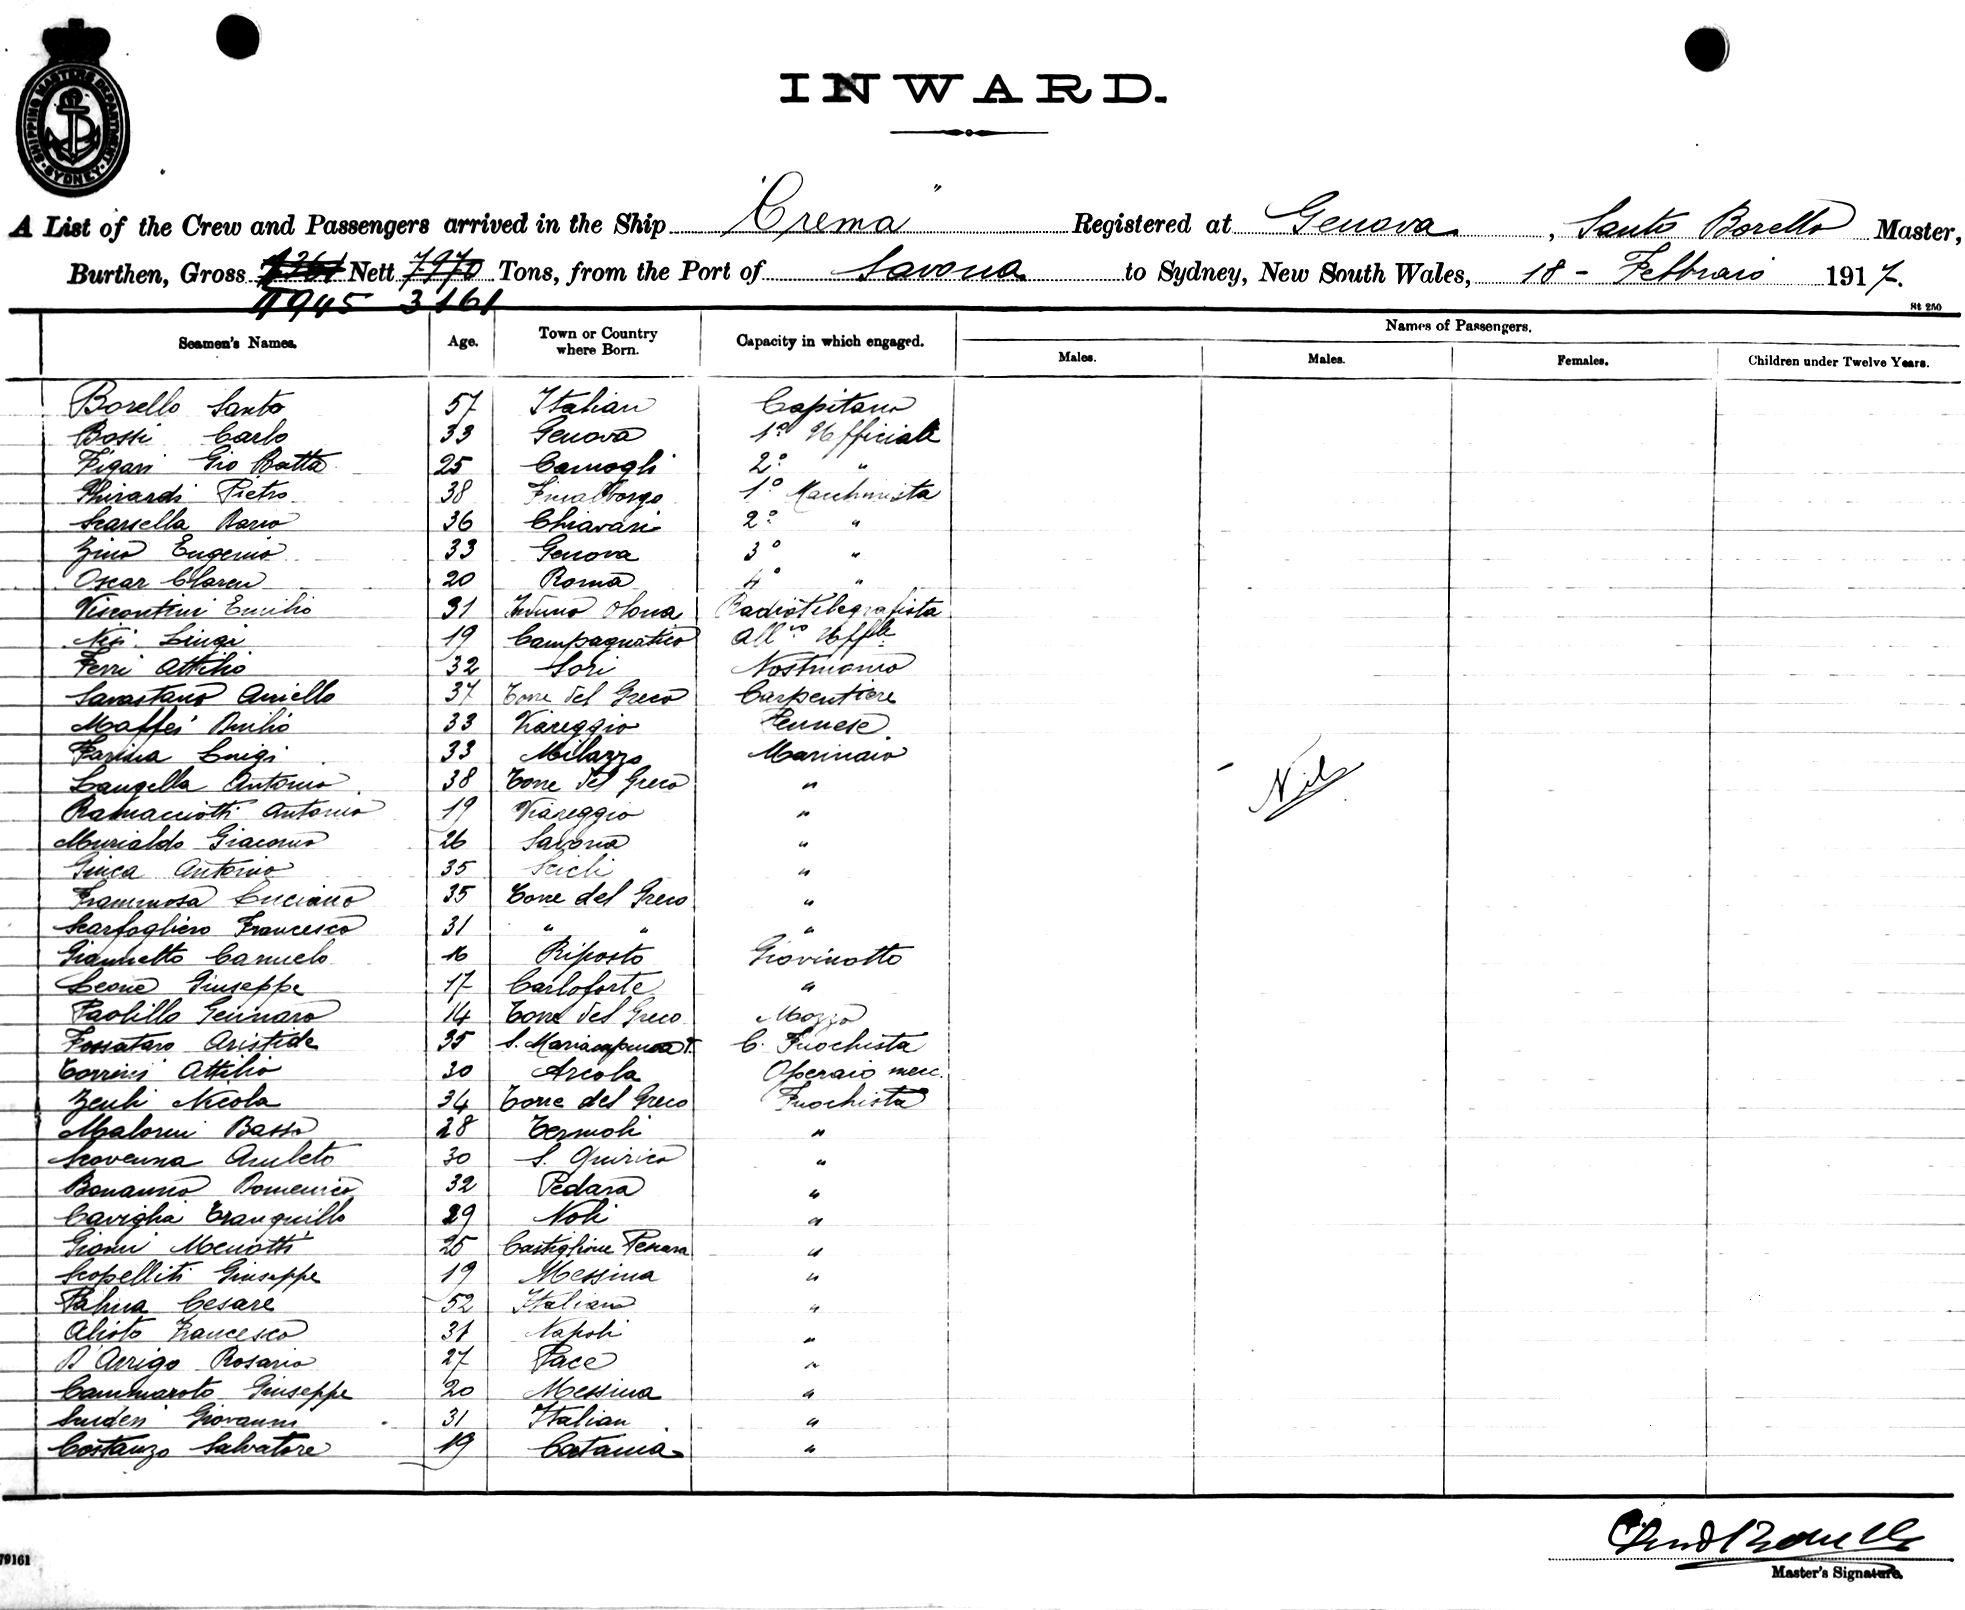 SHIPPING MASTERS DEPARTMENT SYDNEY
INWARD.
A List of the Crew and Passengers arrived in the Ship "Crema" Registered at Genova, Santo Borello Master,
Burthen, Gross Nett 7970 Tons, from the Port of Savona to Sydney, New South Wales, 18 - Febbraio 1917.
4945 3161
St 250
Seamen's Names. Age. Town or Country where Born. Capacity in which engaged. Names of Passengers.
Males. Males. Females. Children under Twelve Years.
Borello Santo 57 Italian Capitano
Bossi Carlo 33 Genova 1º Ufficiale
Figari Gio Batta 25 Camogli 2º "
Ghirardi Pietro 38 Finalborgo 1º Macchinista
Scarsella Dario 36 Chiavari 2º "
Zino Eugenio 33 Genova 3º "
Oscar 20 Roma 4º "
Viscontini Emilio 31 Induno Olona Radiotelegrafista
Nisi Luigi 19 Campagnatico Allº Uffle
Ferri Attilio 32 Sori Nostromo
Savastano Aniello 37 Torre del Greco Carpentiere
Maffei Duilio 33 Viareggio Pennese
Farina Luigi 33 Milazzo Marinaio
Langella Antonio 38 Torre del Greco "
Ramacciotti Antonio 19 Viareggio "
Murialdo Giacomo 26 Savona "
Giuca Antonio 35 Scicli "
Frammosa Luciano 35 Torre del Greco "
Scarfogliero Francesco 31 " " "
Giannetto Carmelo 16 Riposto Giovinotto
Leone Giuseppe 17 Carloforte "
Paolillo Gennaro 14 Torre del Greco Mozzo
Fossataro Aristide 35 S. Maria C. Fuochista
Torrini Attilio 30 Arcola Operaio mecc.
Zeuli Nicola 34 Torre del Greco Fuochista
Malorni Basso 28 Termoli "
Scovenna Amleto 30 S. Quirico "
Bonanno Domenico 32 Pedara "
Caviglia Tranquillo 29 Noli "
Gianni Menotti 25 Castiglione Pescara "
Scopelliti Giuseppe 19 Messina "
Palma Cesare 52 Italiano "
Alioto Francesco 31 Napoli "
D'Arrigo Rosario 27 Pace "
Cammaroto Giuseppe 20 Messina "
Giovanni 31 Italian "
Costanzo Salvatore 19 Catania "
Nil
79161
Master's Signature.